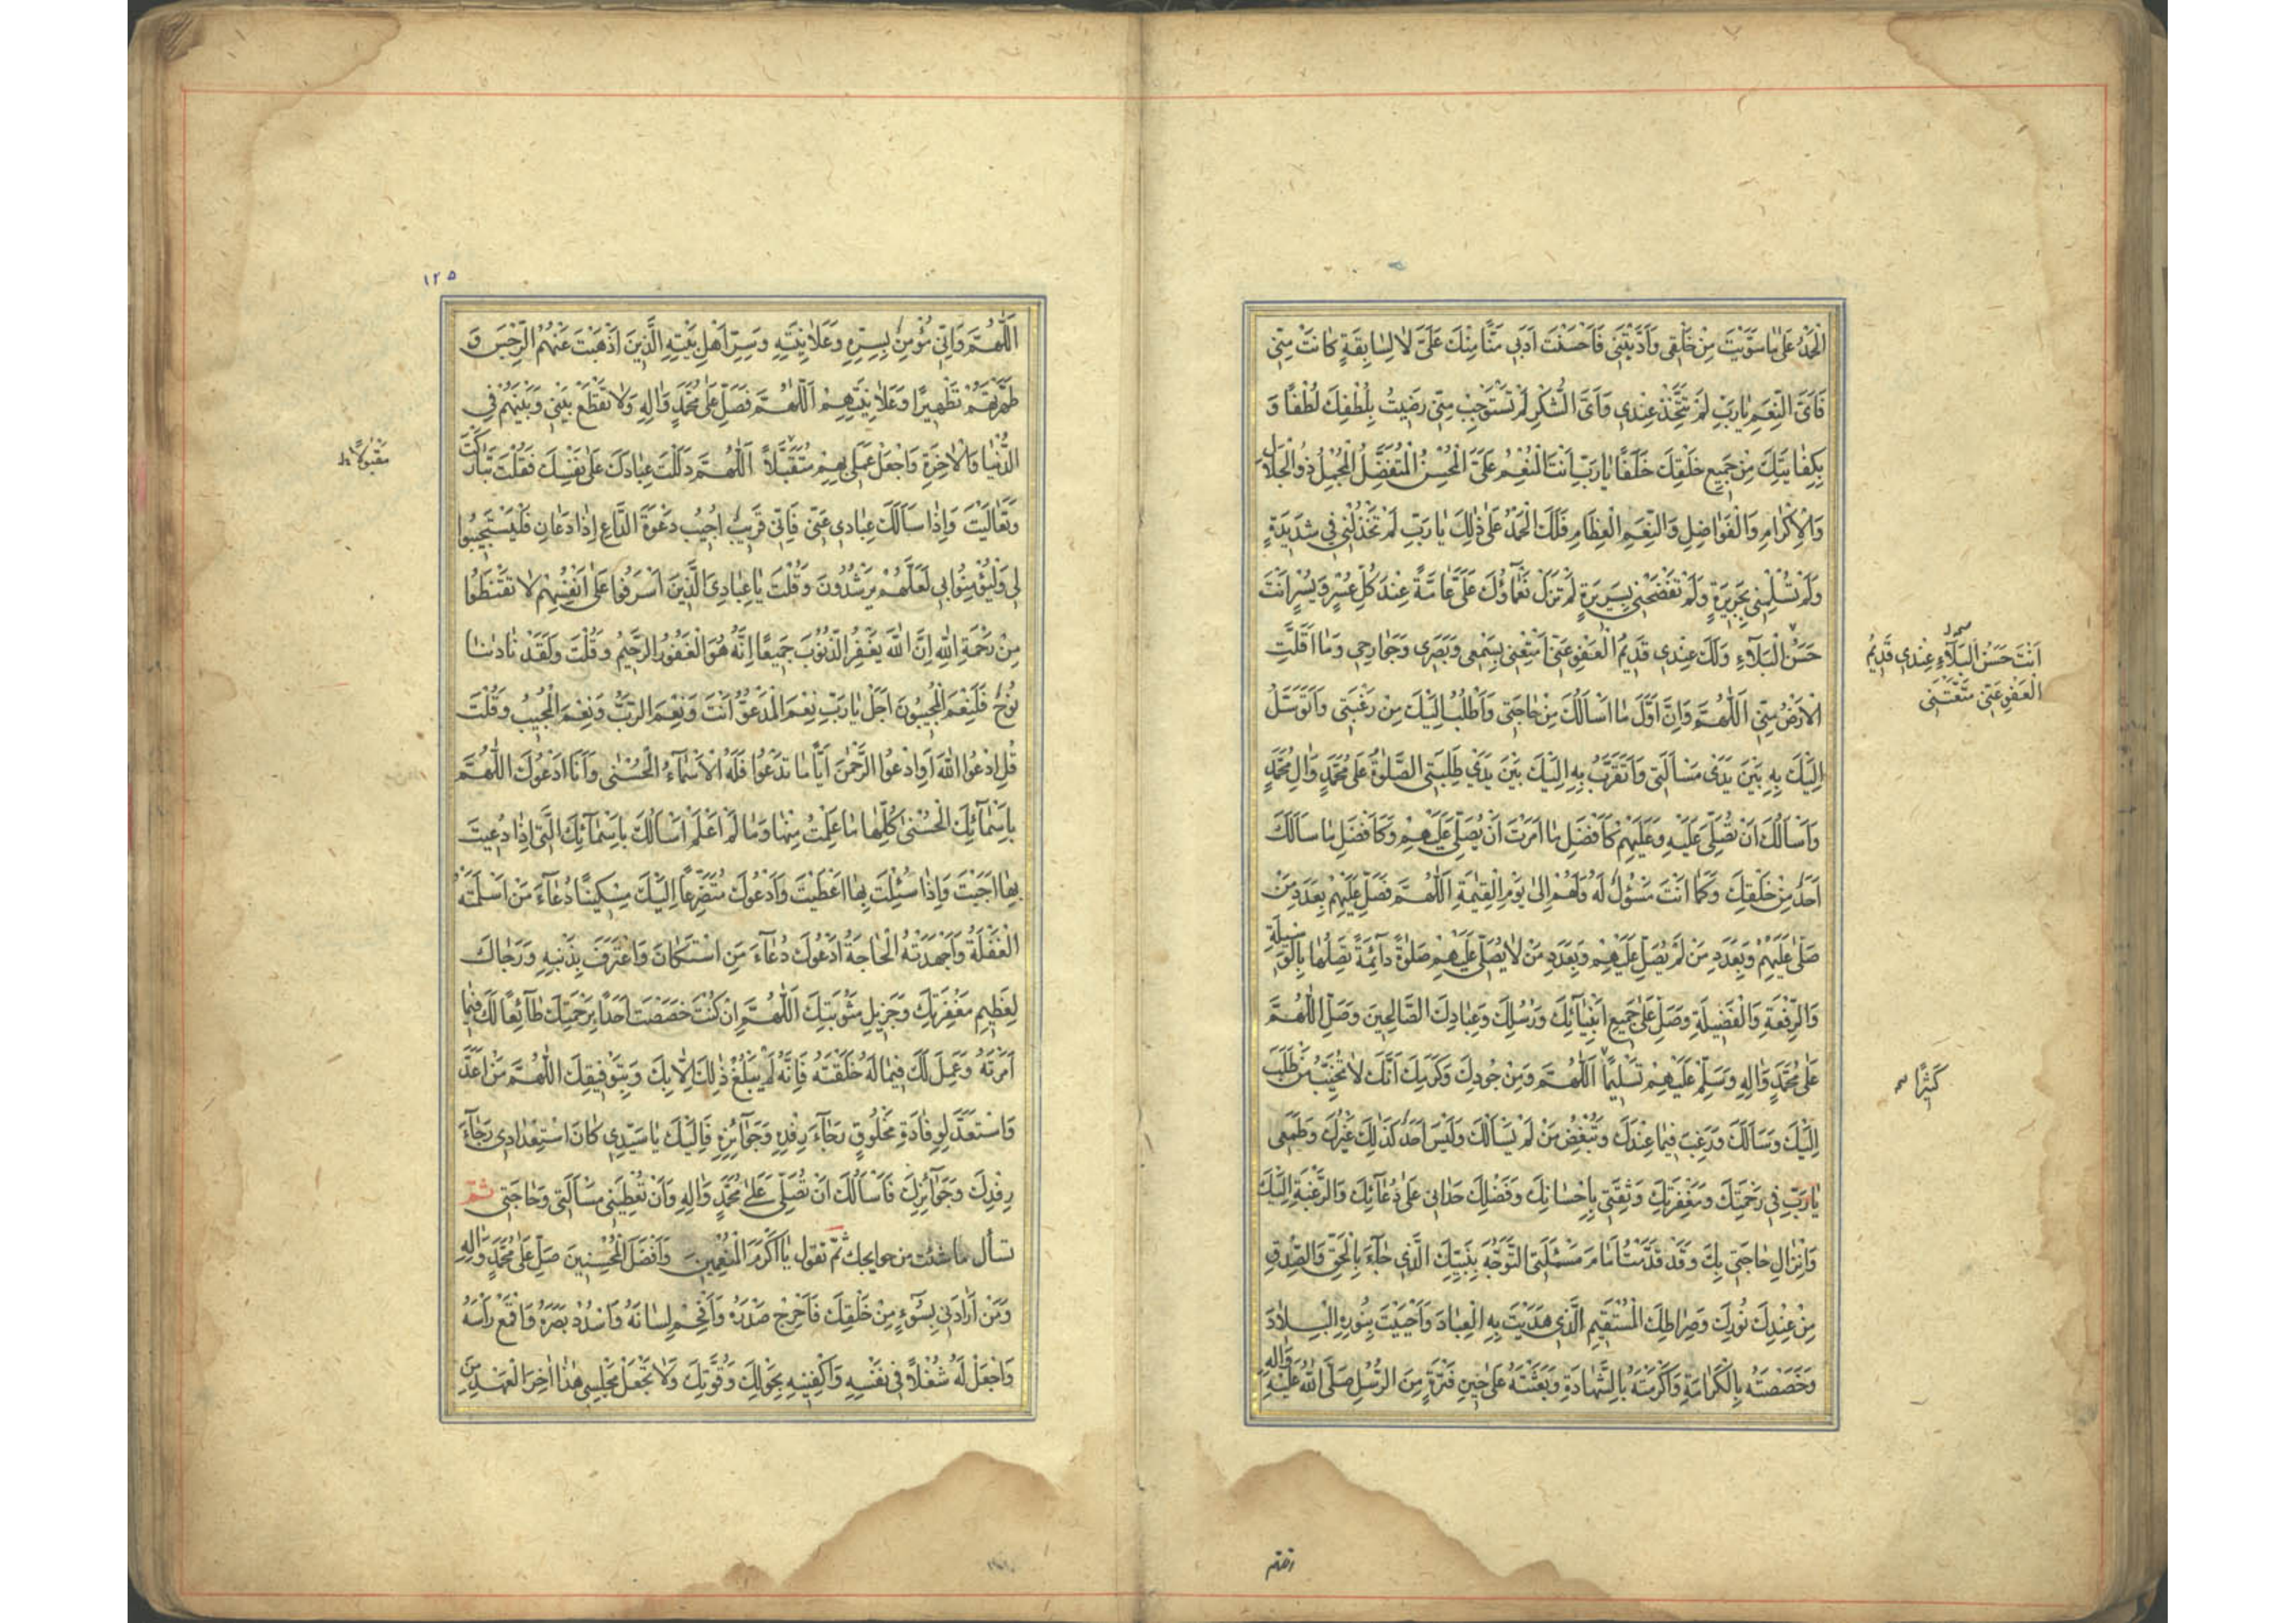 اَلْحَمْدُ عَلىٰ مٰا سَوَّيْتَ مِنْ خَلْقى وَاَدَّبْتَنى فَاَحْسَنْتَ اَدَبى مَنًّا مِنْكَ عَلَىَّ لٰا لِسٰابِقَةٍ كٰانَتْ مِنّى
فَاَىَّ النِّعَمِ يٰارَبِّ لَمْ تَتَّخِذْ عِنْدى وَاَىَّ الشُّكْرِ لَمْ تَسْتَوْجِبْ مِنّى رَضيتُ بِلُطْفِكَ لُطْفًا وَ
بِكِفٰايَتِكَ مِنْ جَميعِ خَلْقِكَ خَلَفًا يٰارَبِّ اَنْتَ الْمُنْعِمُ عَلَىَّ الْمُحْسِنُ الْمُتَفَضِّلُ الْمُجْمِلُ ذُوالْجَلٰالِ
وَالْاِكْرٰامِ وَالْفَوٰاضِلِ وَالنِّعَمِ الْعِظٰامِ فَلَكَ الْحَمْدُ عَلىٰ ذٰلِكَ يٰارَبِّ لَمْ تَخْذُلْنى فى شَديدَةٍ
وَلَمْ تُسْلِمْنى بِجَريرَةٍ وَلَمْ تَفْضَحْنى بِسَريرَةٍ لَمْ تَزَلْ نَعْمٰاؤُكَ عَلَىَّ عٰامَّةً عِنْدَ كُلِّ عُسْرٍ وَيُسْرٍ اَنْتَ
حَسَنُ الْبَلآءِ وَلَكَ عِنْدى قَديمُ الْعَفْوِ عَنّى اَمْتِعْنى بِسَمْعى وَبَصَرى وَجَوٰارِحى وَمٰا اَقَلَّتِ
اَنْتَ حَسَنُ الْبَلآءِ عِنْدى قَديمُ
الْعَفْوِ عَنّى مَتَّعْتَنى
الْاَرْضُ مِنّى اَللّٰهُمَّ وَاِنَّ اَوَّلَ مٰا اَسْاَلُكَ مِنْ حٰاجَتى وَاَطْلُبُ اِلَيْكَ مِنْ رَغْبَتى وَاَتَوَسَّلُ
اِلَيْكَ بِهِ بَيْنَ يَدَىْ مَسْاَلَتى وَاَتَقَرَّبُ بِهِ اِلَيْكَ بَيْنَ يَدَىْ طَلِبَتى الصَّلٰوةُ عَلىٰ مُحَمَّدٍ وَاٰلِ مُحَمَّدٍ
وَاَسْاَلُكَ اَنْ تُصَلِّىَ عَلَيْهِ وَعَلَيْهِمْ كَاَفْضَلِ مٰا اَمَرْتَ اَنْ يُصَلّىٰ عَلَيْهِمْ وَكَاَفْضَلِ مٰا سَاَلَكَ
اَحَدٌ مِنْ خَلْقِكَ وَكَمٰا اَنْتَ مَسْؤُلٌ لَهُ وَلَهُمْ اِلىٰ يَوْمِ الْقِيٰمَةِ اَللّٰهُمَّ فَصَلِّ عَلَيْهِمْ بِعَدَدِ مَنْ
صَلّىٰ عَلَيْهِمْ وَبِعَدَدِ مَنْ لَمْ يُصَلِّ عَلَيْهِمْ وَبِعَدَدِ مَنْ لٰا يُصَلّى عَلَيْهِمْ صَلٰوةً دآئِمَةً تَصِلُهٰا بِالْوَسيلَةِ
وَالرِّفْعَةِ وَالْفَضيلَةِ وَصَلِّ عَلىٰ جَميعِ اَنْبِيٰآئِكَ وَرُسُلِكَ وَعِبٰادِكَ الصّٰالِحينَ وَصَلِّ اللّٰهُمَّ
عَلىٰ مُحَمَّدٍ وَاٰلِهِ وَسَلِّمْ عَلَيْهِمْ تَسْليمًا اَللّٰهُمَّ وَمِنْ جُودِكَ وَكَرَمِكَ اَنَّكَ لٰا تُخَيِّبُ مَنْ طَلَبَ
كَثيرًا
اِلَيْكَ وَسَاَلَكَ وَرَغِبَ فيمٰا عِنْدَكَ وَتُبْغِضُ مَنْ لَمْ يَسْاَلْكَ وَلَيْسَ اَحَدٌ كَذٰلِكَ غَيْرُكَ وَطَمَعى
يٰارَبِّ فى رَحْمَتِكَ وَمَغْفِرَتِكَ وَثِقَتى بِاِحْسٰانِكَ وَفَضْلِكَ حَدٰانى عَلىٰ دُعٰآئِكَ وَالرَّغْبَةِ اِلَيْكَ
وَاِنْزٰالِ حٰاجَتى بِكَ وَقَدْ قَدَّمْتُ اَمٰامَ مَسْئَلَتى التَّوَجُّهَ بِنَبِيِّكَ الَّذى جٰآءَ بِالْحَقِّ وَالصِّدْقِ
مِنْ عِنْدِكَ نُورِكَ وَصِرٰاطِكَ الْمُسْتَقيمِ الَّذى هَدَيْتَ بِهِ الْعِبٰادَ وَاَحْيَيْتَ بِنُورِهِ الْبِلٰادَ
وَخَصَصْتَهُ بِالْكَرٰامَةِ وَاَكْرَمْتَهُ بِالشَّهٰادَةِ وَبَعَثْتَهُ عَلىٰ حينِ فَتْرَةٍ مِنَ الرُّسُلِ صَلَّى اللّٰهُ عَلَيْهِ وَاٰلِهِ
١٢٥
اَللّٰهُمَّ وَاِنّى مُؤْمِنٌ بِسِرِّهِ وَعَلٰانِيَتِهِ وَسِرِّ اَهْلِ بَيْتِهِ الَّذينَ اَذْهَبْتَ عَنْهُمُ الرِّجْسَ وَ
طَهَّرْتَهُمْ تَطْهيرًا وَعَلٰانِيَتِهِمْ اَللّٰهُمَّ فَصَلِّ عَلىٰ مُحَمَّدٍ وَاٰلِهِ وَلٰا تَقْطَعْ بَيْنى وَبَيْنَهُمْ فِى
الدُّنْيٰا وَالْاٰخِرَةِ وَاجْعَلْ عَمَلى بِهِمْ مُتَقَبَّلًا اَللّٰهُمَّ دَلَلْتَ عِبٰادَكَ عَلىٰ نَفْسِكَ فَقُلْتَ تَبٰارَكْتَ
مَقْبُولًا
وَتَعٰالَيْتَ وَاِذٰا سَاَلَكَ عِبٰادى عَنّى فَاِنّى قَريبٌ اُجيبُ دَعْوَةَ الدّٰاعِ اِذٰا دَعٰانِ فَلْيَسْتَجيبُوا
لى وَلْيُؤْمِنُوا بى لَعَلَّهُمْ يَرْشُدُونَ وَقُلْتَ يٰا عِبٰادِىَ الَّذينَ اَسْرَفُوا عَلىٰ اَنْفُسِهِمْ لٰا تَقْنَطُوا
مِنْ رَحْمَةِ اللّٰهِ اِنَّ اللّٰهَ يَغْفِرُ الذُّنُوبَ جَميعًا اِنَّهُ هُوَ الْغَفُورُ الرَّحيمُ وَقُلْتَ وَلَقَدْ نٰادٰينٰا
نُوحٌ فَلَنِعْمَ الْمُجيبُونَ اَجَلْ يٰارَبِّ نِعْمَ الْمَدْعُوُّ اَنْتَ وَنِعْمَ الرَّبُّ وَنِعْمَ الْمُجيبُ وَقُلْتَ
قُلِ ادْعُوا اللّٰهَ اَوِ ادْعُوا الرَّحْمٰنَ اَيًّا مٰا تَدْعُوا فَلَهُ الْاَسْمٰآءُ الْحُسْنىٰ وَاَنَا اَدْعُوكَ اللّٰهُمَّ
بِاَسْمٰآئِكَ الْحُسْنىٰ كُلِّهٰا مٰا عَلِمْتُ مِنْهٰا وَمٰا لَمْ اَعْلَمْ اَسْاَلُكَ بِاَسْمٰآئِكَ الَّتى اِذٰا دُعيتَ
بِهٰا اَجَبْتَ وَاِذٰا سُئِلْتَ بِهٰا اَعْطَيْتَ وَاَدْعُوكَ مُتَضَرِّعًا اِلَيْكَ مِسْكينًا دُعٰآءَ مَنْ اَسْلَمَتْهُ
الْغَفْلَةُ وَاَجْهَدَتْهُ الْحٰاجَةُ اَدْعُوكَ دُعٰآءَ مَنِ اسْتَكٰانَ وَاعْتَرَفَ بِذَنْبِهِ وَرَجٰاكَ
لِعَظيمِ مَغْفِرَتِكَ وَجَزيلِ مَثُوبَتِكَ اَللّٰهُمَّ اِنْ كُنْتَ خَصَصْتَ اَحَدًا بِرَحْمَتِكَ طٰآئِعًا لَكَ فيمٰا
اَمَرْتَهُ وَعَمِلَ لَكَ فيمٰا لَهُ خَلَقْتَهُ فَاِنَّهُ لَمْ يَبْلُغْ ذٰلِكَ اِلّٰا بِكَ وَبِتَوْفيقِكَ اَللّٰهُمَّ مَنْ اَعَدَّ
وَاسْتَعَدَّ لِوِفٰادَةِ مَخْلُوقٍ رَجٰآءَ رِفْدِهِ وَجَوٰآئِزِهِ فَاِلَيْكَ يٰا سَيِّدى كٰانَ اسْتِعْدٰادى رَجٰآءَ
رِفْدِكَ وَجَوٰآئِزِكَ فَاَسْاَلُكَ اَنْ تُصَلِّىَ عَلىٰ مُحَمَّدٍ وَاٰلِهِ وَاَنْ تُعْطِيَنى مَسْاَلَتى وَحٰاجَتى ثم
تسأل ماشئت من حوايجك ثمّ تقول يٰا اَكْرَمَ الْمُنْعِمينَ وَاَفْضَلَ الْمُحْسِنينَ صَلِّ عَلىٰ مُحَمَّدٍ وَاٰلِهِ
وَمَنْ اَرٰادَنى بِسُوٓءٍ مِنْ خَلْقِكَ فَاَحْرِجْ صَدْرَهُ وَاَفْحِمْ لِسٰانَهُ وَاسْدُدْ بَصَرَهُ وَاقْمَعْ رَأْسَهُ
وَاجْعَلْ لَهُ شُغْلًا فى نَفْسِهِ وَاكْفِنيهِ بِحَوْلِكَ وَقُوَّتِكَ وَلٰا تَجْعَلْ مَجْلِسى هٰذٰا اٰخِرَ الْعَهْدِ مِنَ